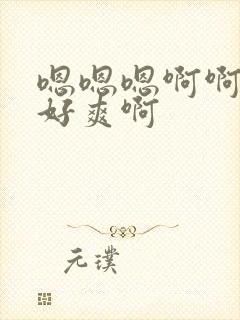 嗯嗯嗯啊啊
好爽啊
元璞